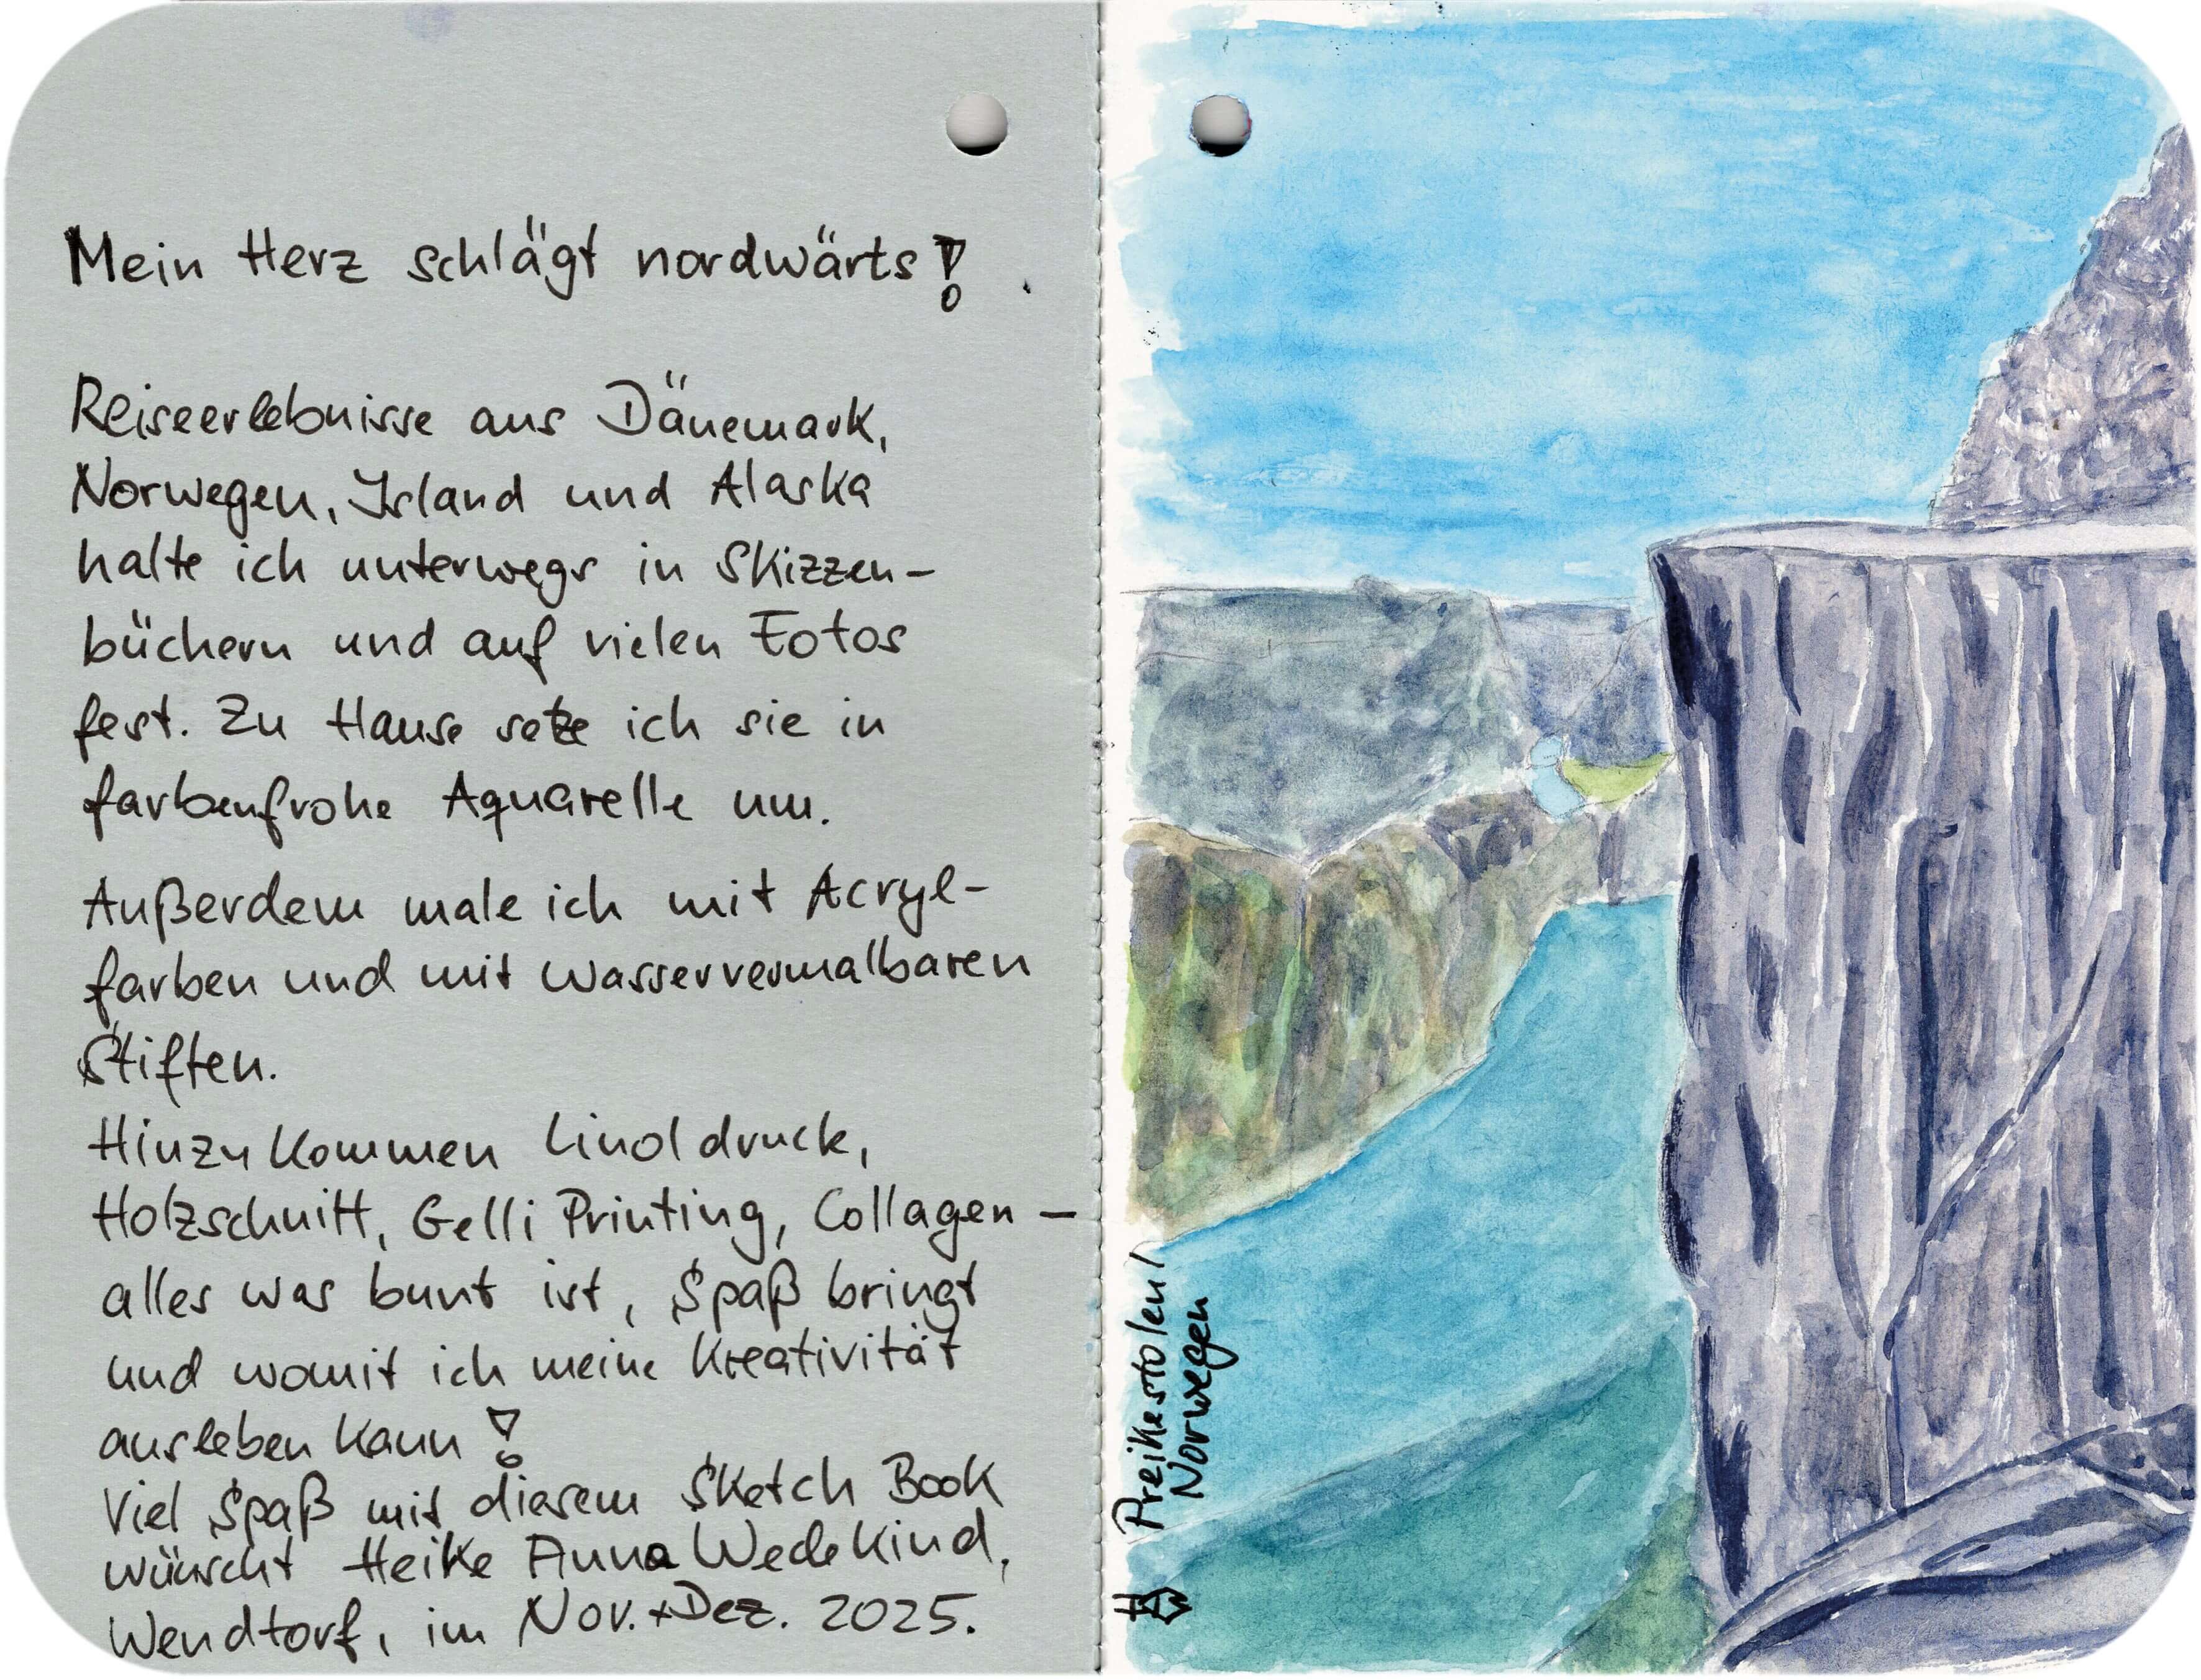 Mein Herz schlägt nordwärts!
Reiseerlebnisse aus Dänemark,
Norwegen, Island und Alaska
halte ich unterwegs in Skizzen-
büchern und auf vielen Fotos
fest. Zu Hause setze ich sie in
farbenfrohe Aquarelle um.
Außerdem male ich mit Acryl-
farben und mit wasservermalbaren
Stiften.
Hinzu kommen Linoldruck,
Holzschnitt, Gelli Printing, Collagen –
alles was bunt ist, Spaß bringt
und womit ich meine Kreativität
ausleben kann!
Viel Spaß mit diesem Sketch Book
wünscht Heike Anna Wedekind,
Wendtorf, im Nov.+Dez. 2025.
Preikestolen/
Norwegen
HAW